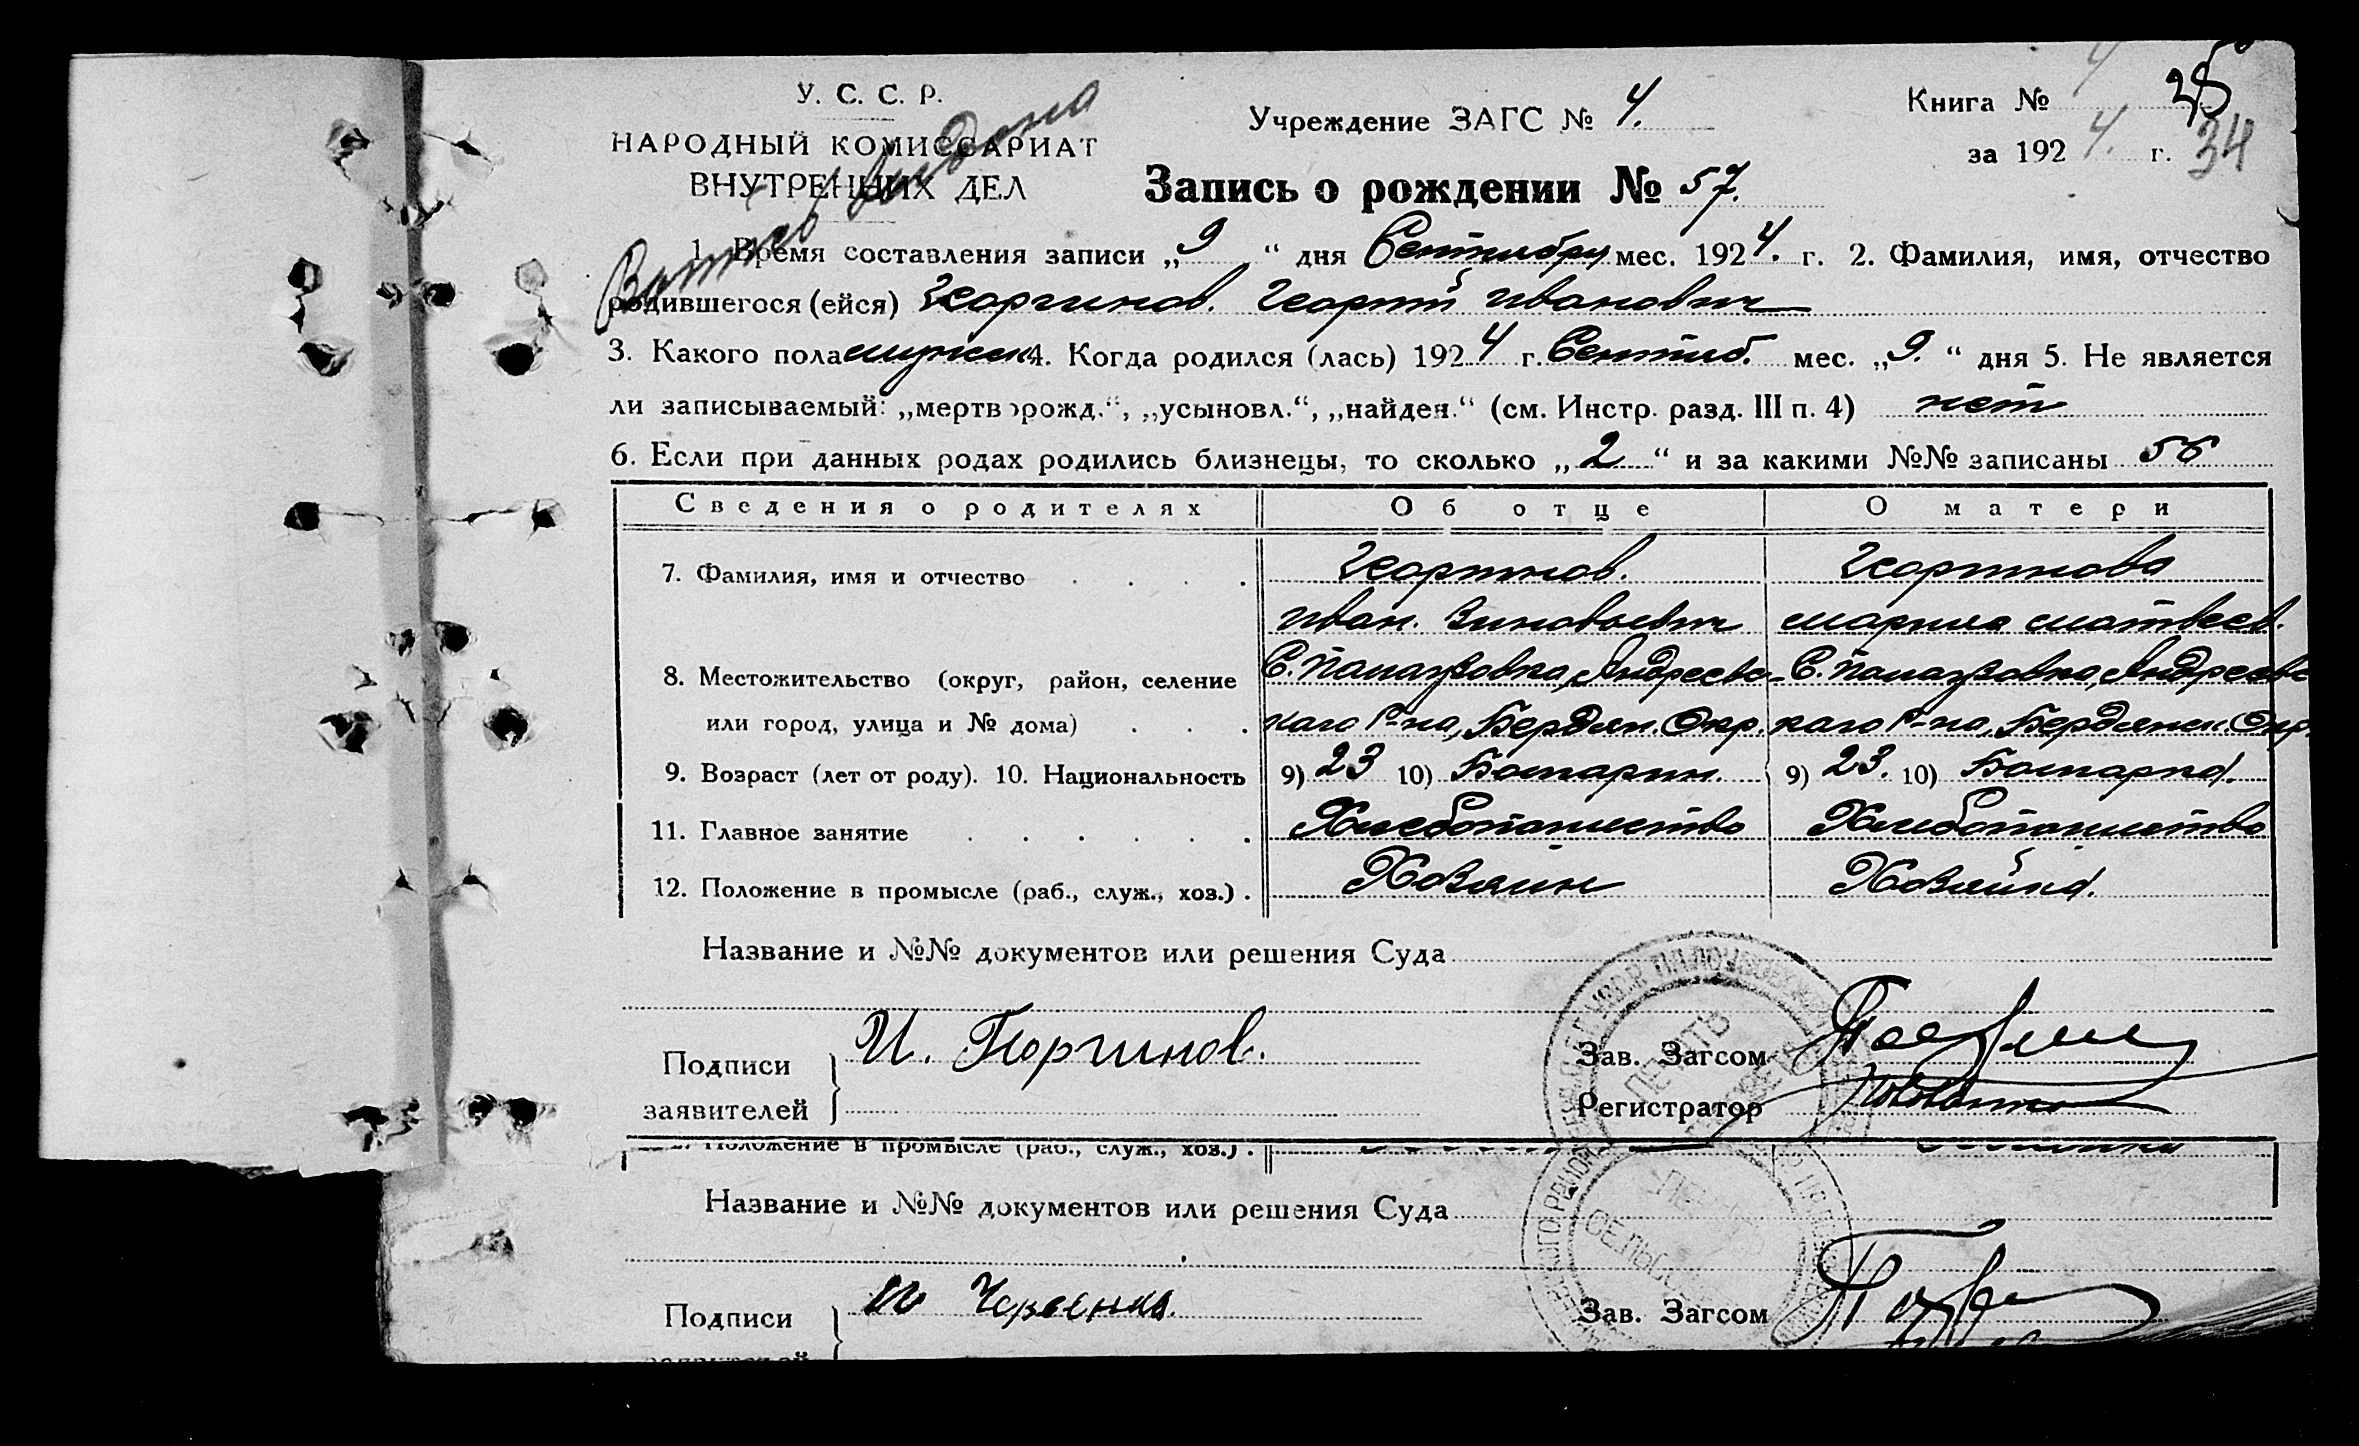 У. С. С. Р.
НАРОДНЫЙ КОМИССАРИАТ
ВНУТРЕННИХ ДЕЛ
Выдана
Учреждение ЗАГС № 4.
Книга № 4
35
за 192 4. г. 34
Запись о рождении № 57.
1. Время составления записи „9“ дня Сентября мес. 1924. г. 2. Фамилия, имя, отчество
родившегося (ейся) Георгинов. Георгий Иванович
3. Какого пола мужск 4. Когда родился (лась) 192 4 г. Сентяб. мес. „9.“ дня 5. Не является
ли записываемый: „мертворожд.“, „усыновл.“, „найден.“ (см. Инстр. разд. III п. 4) нет
6. Если при данных родах родились близнецы, то сколько „2“ и за какими №№ записаны 56
Сведения о родителях Об отце О матери
7. Фамилия, имя и отчество . . . . Георгинов. Георгинова
Иван. Зиновьевич Мария Матвеев.
8. Местожительство (округ, район, селение С. Палаузовка, Андреевс- С. Палаузовка, Андреевс
или город, улица и № дома) . . . каго Р-на, Бердян. Окр. каго Р-на, Бердянск. Окр.
9. Возраст (лет от роду). 10. Национальность 9) 23 10) Болгарин. 9) 23. 10) Болгарка.
11. Главное занятие . . . . . . Хлебопашество Хлебопашество
12. Положение в промысле (раб., служ., хоз.) . Хозяин Хозяйка.
Название и №№ документов или решения Суда
Подписи
заявителей
И. Георгинов.
Зав. Загсом
Регистратор
ПЕЧАТЬ
12. Положение в промысле (раб., служ., хоз.) .
Название и №№ документов или решения Суда
СЕЛЬСО
Подписи
Зав. Загсом